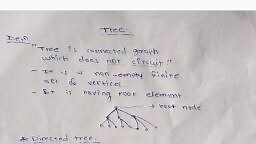 Tree
Defn
"Tree is connected graph
which does not circuit"
- It is a non-empty finite
set of vertices
- It is having root element
→ root node
* Directed tree: